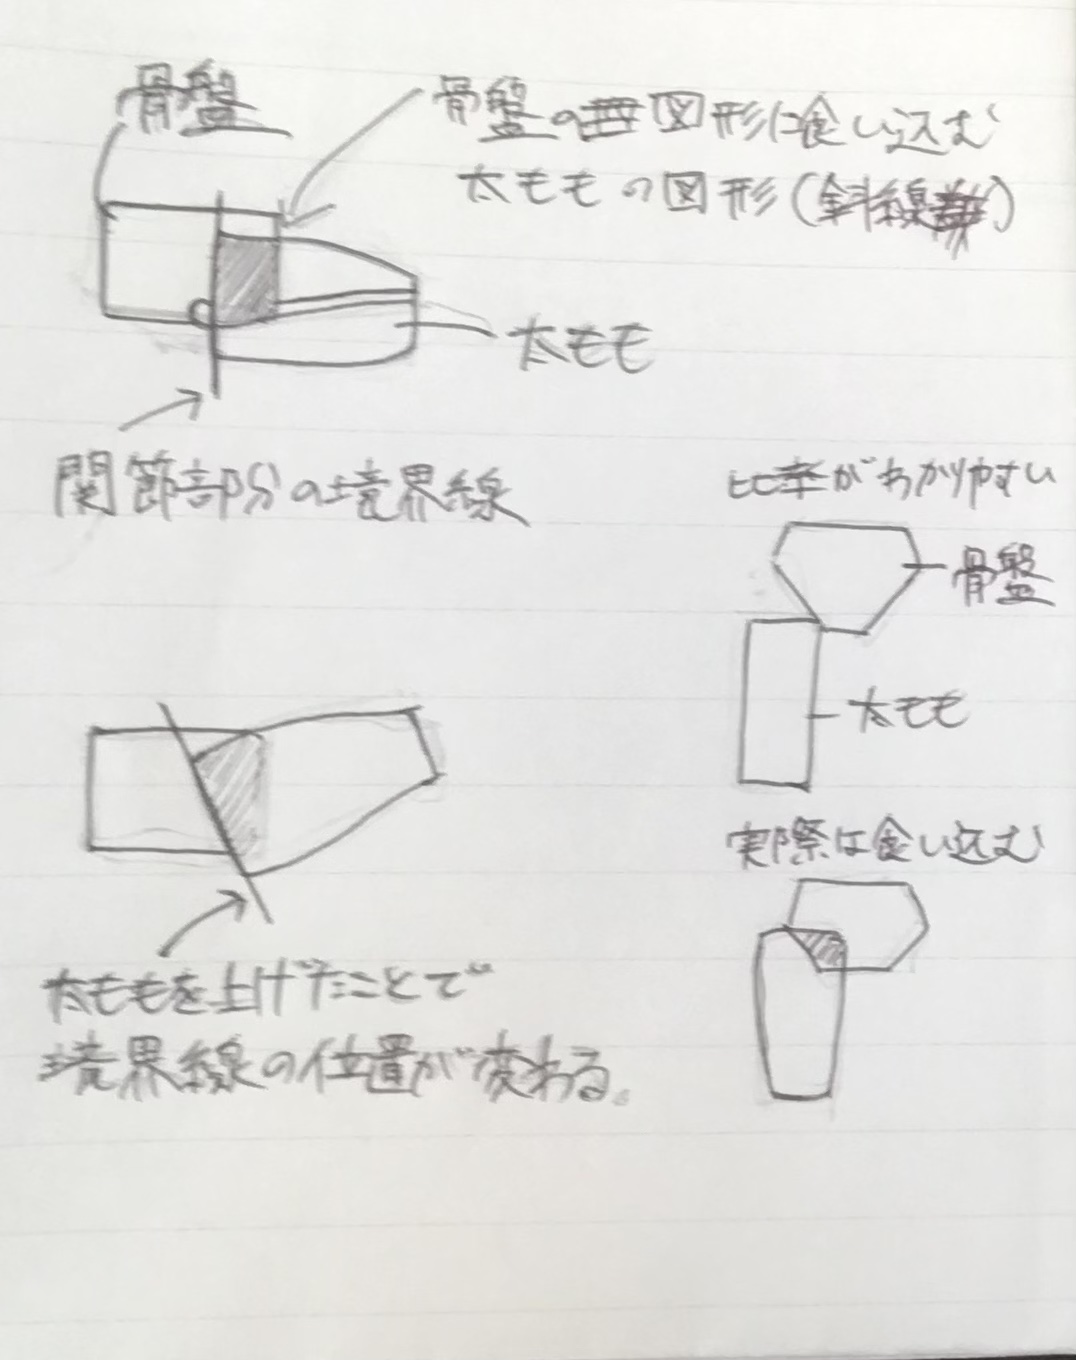 骨盤
骨盤の図形に食い込む
太ももの図形(斜線)
太もも
関節部分の境界線
比率がわかりやすい
骨盤
太もも
実際は食い込む
太ももを上げたことで
境界線の位置が変わる。